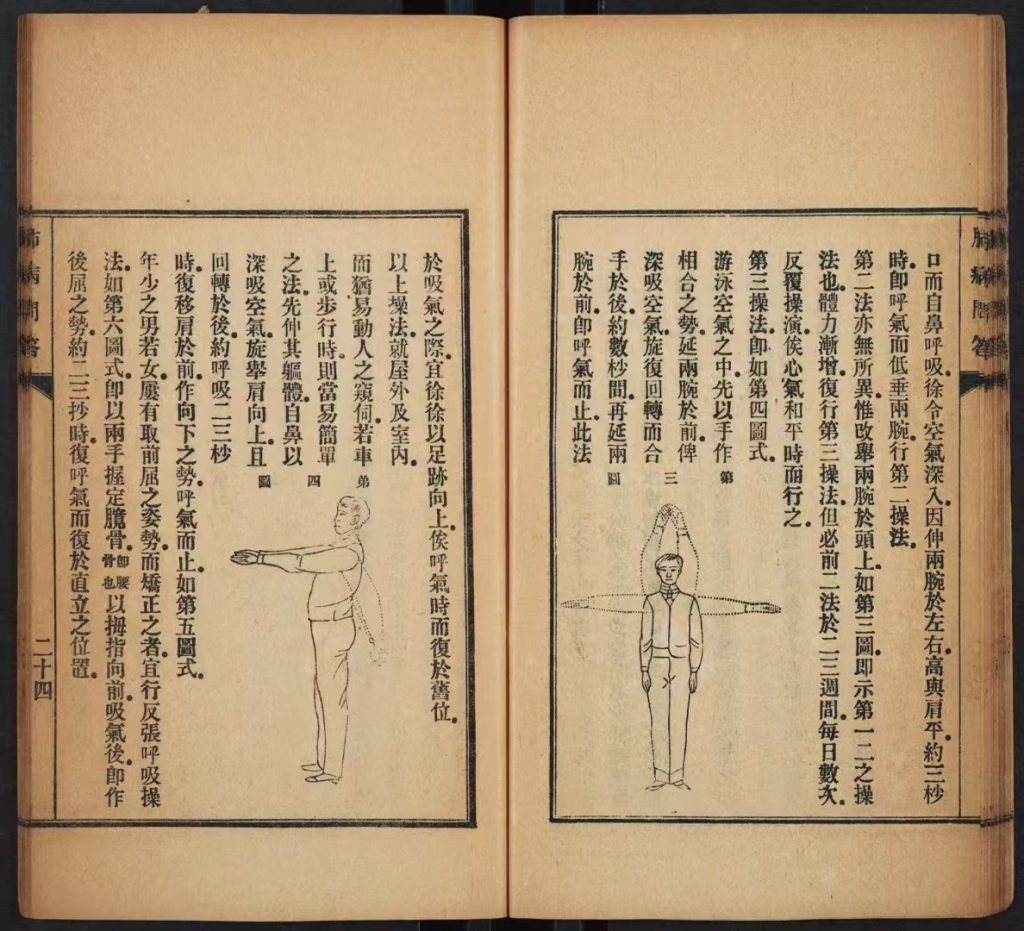 肺病問答
口而自鼻呼吸。徐令空氣深入。因伸兩腕於左右。高與肩平。約三杪
時。卽呼氣而低垂兩腕。行第二操法。
第二法亦無所異。惟改舉兩腕於頭上。如第三圖。卽示第一二之操
法也。體力漸增。復行第三操法。但必前二法於二三週間。每日數次。
反覆操演。俟心氣和平時而行之。
第三操法。卽如第四圖式。
游泳空氣之中。先以手作
相合之勢。延兩腕於前。俾
深吸空氣。旋復回轉而合
手於後。約數杪間。再延兩
腕於前。卽呼氣而止。此法
第三圖
於吸氣之際。宜徐徐以足跡向上。俟呼氣時而復於舊位。
以上操法。就屋外及室內。
而猶易動人之窺伺。若車
上或步行時。則當易簡單
之法。先伸其軀體。自鼻以
深吸空氣。旋舉肩向上。且
回轉於後。約呼吸二三杪
時。復移肩於前。作向下之勢。呼氣而止。如第五圖式。
年少之男若女。屢有取前屈之姿勢。而矯正之者。宜行反張呼吸操
法。如第六圖式。卽以兩手握定臗骨。卽腰骨也以拇指向前。吸氣後。卽作
後屈之勢。約二三抄時。復呼氣而復於直立之位置。
第四圖
肺病問答
二十四